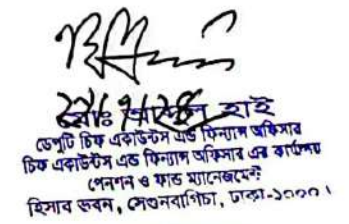 মোঃ আবদুল হাই
ডেপুটি চিফ একাউন্টস এন্ড ফিন্যান্স অফিসার
চিফ একাউন্টস এন্ড ফিন্যান্স অফিসার এর কার্যালয়
পেনশন ও ফান্ড ম্যানেজমেন্ট
হিসাব ভবন, সেগুনবাগিচা, ঢাকা-১০০০।